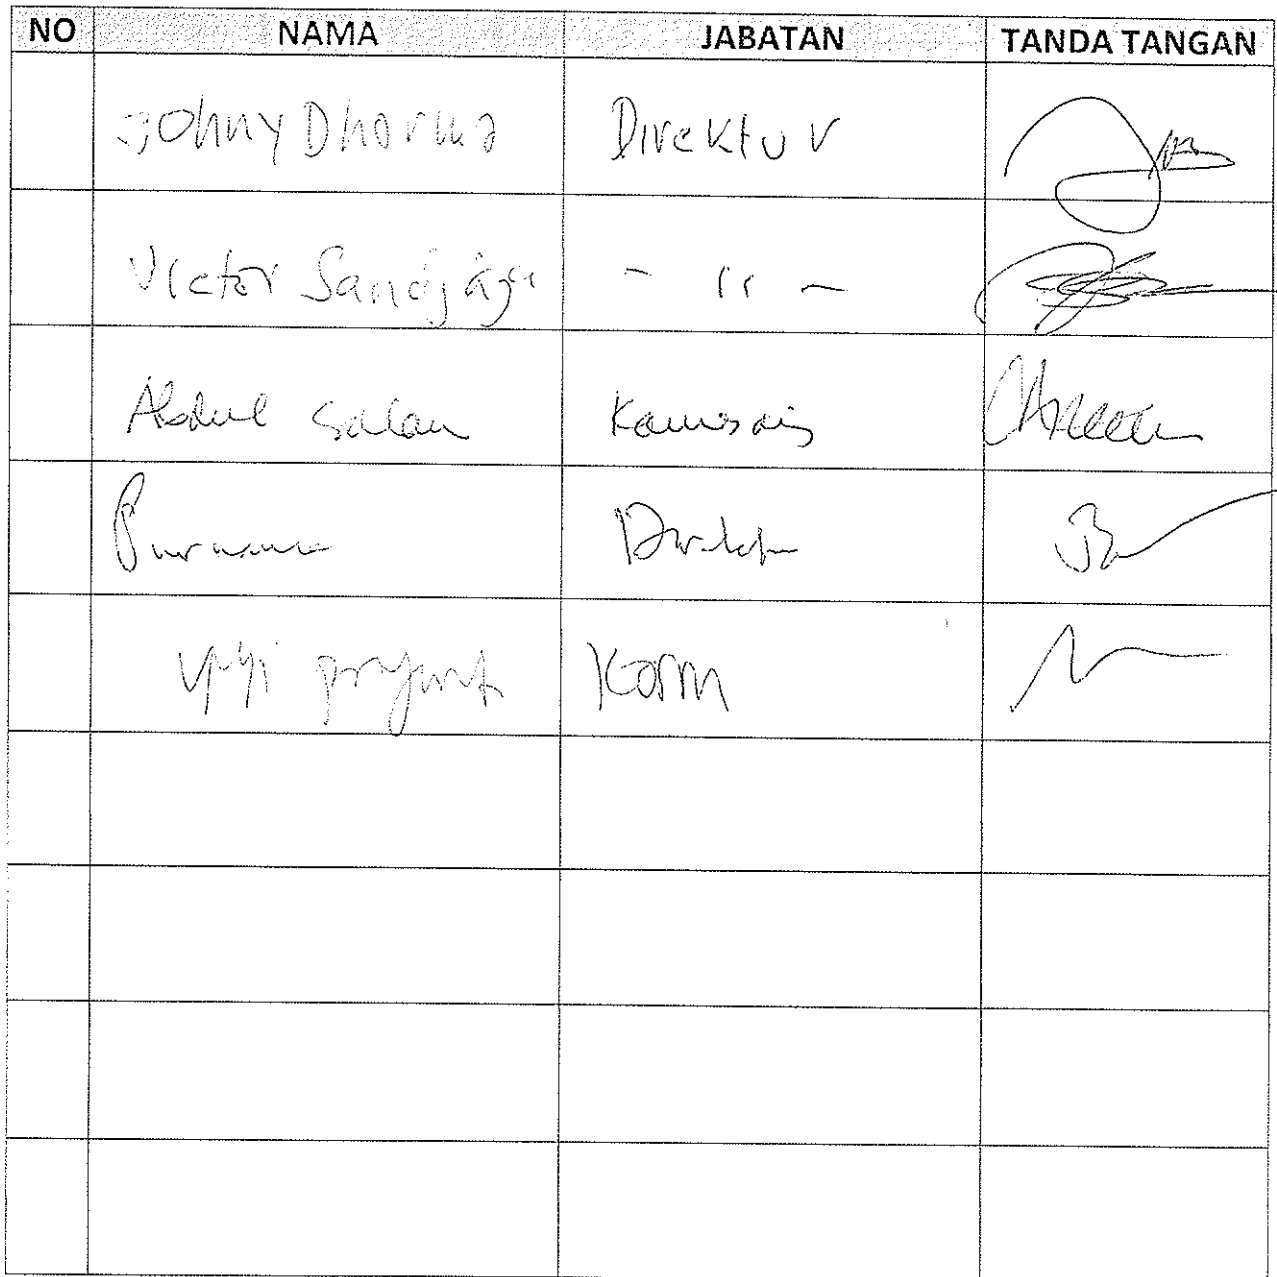 NO NAMA JABATAN TANDA TANGAN
Johny Dharma Direktur
Victor Sandjaja - 11 -
Abdul Salam Komisaris
Purnama Direktur
Kom